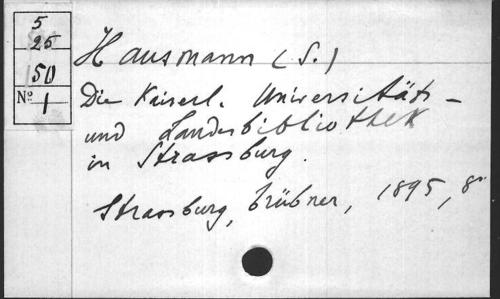 5
25
50
Nº 1
Hausmann (S.)
Die Kaiserl. Universitäts-
und Landesbibliothek
in Strassburg.
Strassburg, Trübner, 1895, 8º